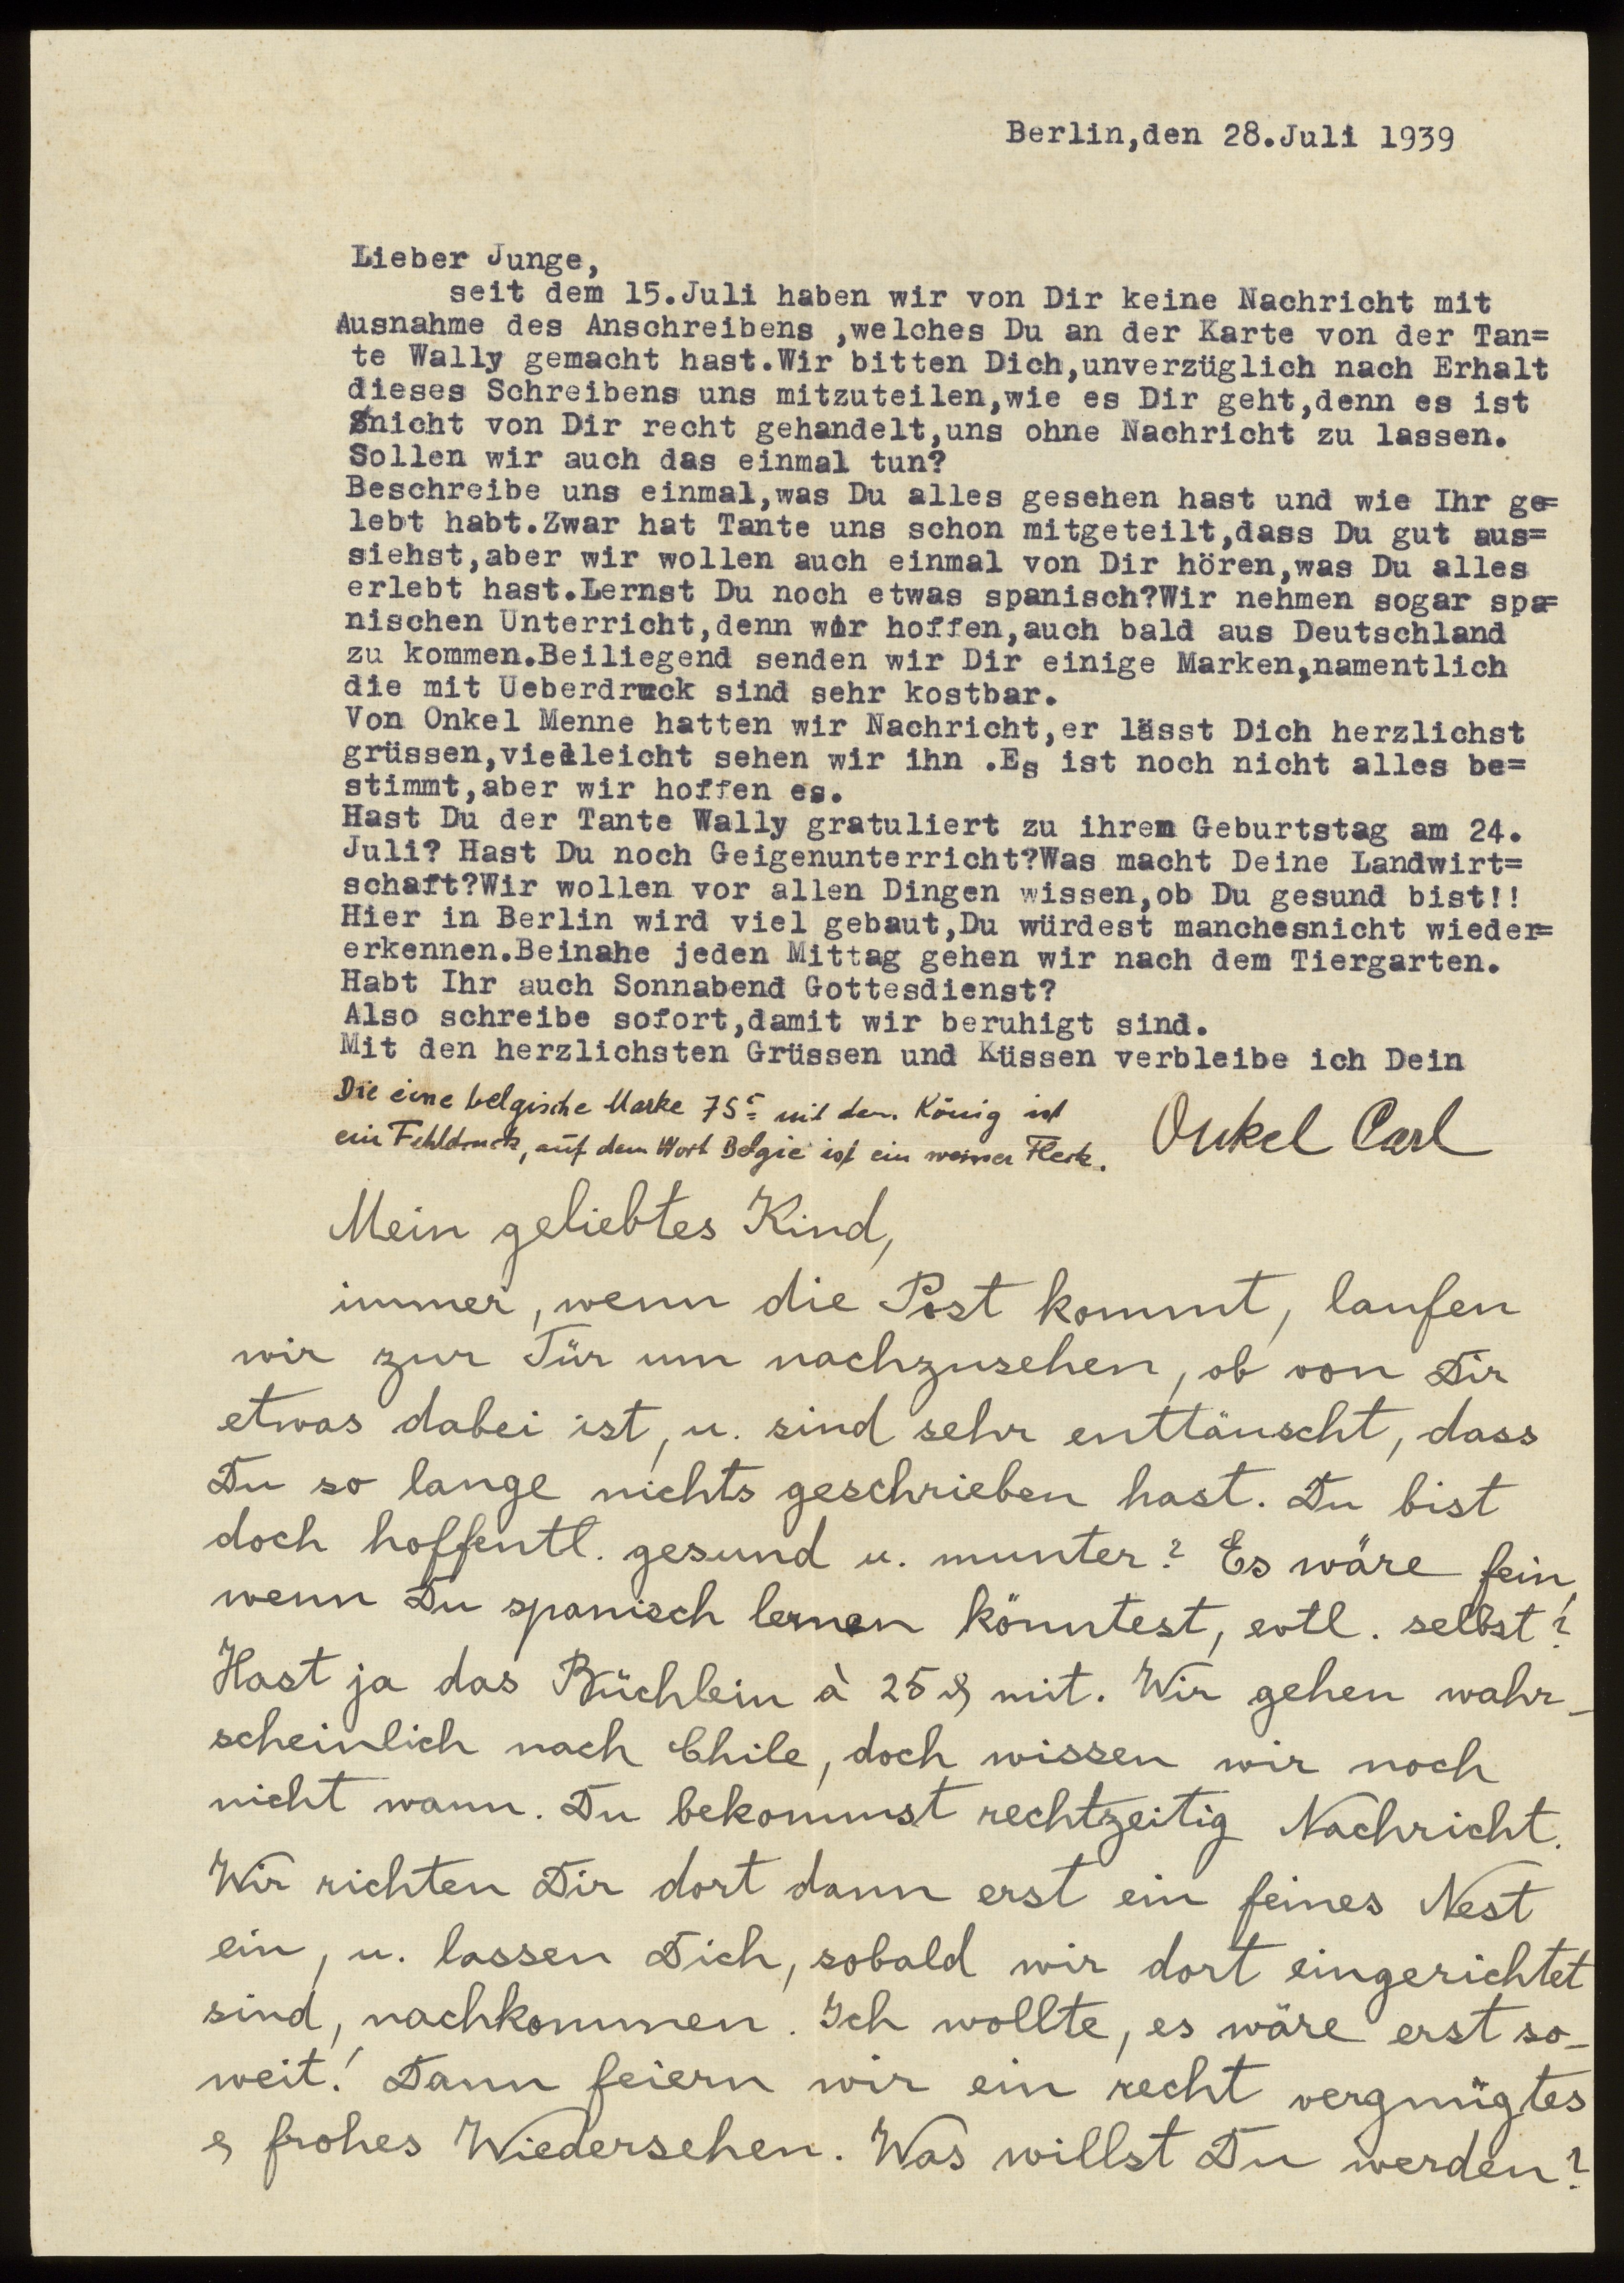 Berlin,den 28.Juli 1939
Lieber Junge,
seit dem 15.Juli haben wir von Dir keine Nachricht mit
Ausnahme des Anschreibens ,welches Du an der Karte von der Tan=
te Wally gemacht hast.Wir bitten Dich,unverzüglich nach Erhalt
dieses Schreibens uns mitzuteilen,wie es Dir geht,denn es ist
nicht von Dir recht gehandelt,uns ohne Nachricht zu lassen.
Sollen wir auch das einmal tun?
Beschreibe uns einmal,was Du alles gesehen hast und wie Ihr ge=
lebt habt.Zwar hat Tante uns schon mitgeteilt,dass Du gut aus=
siehst,aber wir wollen auch einmal von Dir hören,was Du alles
erlebt hast.Lernst Du noch etwas spanisch?Wir nehmen sogar spa=
nischen Unterricht,denn wir hoffen,auch bald aus Deutschland
zu kommen.Beiliegend senden wir Dir einige Marken,namentlich
die mit Ueberdruck sind sehr kostbar.
Von Onkel Menne hatten wir Nachricht,er lässt Dich herzlichst
grüssen,vielleicht sehen wir ihn .Es ist noch nicht alles be=
stimmt,aber wir hoffen es.
Hast Du der Tante Wally gratuliert zu ihrem Geburtstag am 24.
Juli? Hast Du noch Geigenunterricht?Was macht Deine Landwirt=
schaft?Wir wollen vor allen Dingen wissen,ob Du gesund bist!!
Hier in Berlin wird viel gebaut,Du würdest manchesnicht wieder=
erkennen.Beinahe jeden Mittag gehen wir nach dem Tiergarten.
Habt Ihr auch Sonnabend Gottesdienst?
Also schreibe sofort,damit wir beruhigt sind.
Mit den herzlichsten Grüssen und Küssen verbleibe ich Dein
Die eine belgische Marke 75c mit dem König ist
ein Fehldruck, auf dem Wort Belgie ist ein weisser Fleck.
Onkel Carl
Mein geliebtes Kind,
immer, wenn die Post kommt, laufen
wir zur Tür um nachzusehen, ob von Dir
etwas dabei ist, u. sind sehr enttäuscht, dass
Du so lange nichts geschrieben hast. Du bist
doch hoffentl. gesund u. munter? Es wäre fein,
wenn Du spanisch lernen könntest, evtl. selbst?
Hast ja das Büchlein à 25 ₰ mit. Wir gehen wahr-
scheinlich nach Chile, doch wissen wir noch
nicht wann. Du bekommst rechtzeitig Nachricht.
Wir richten Dir dort dann erst ein feines Nest
ein, u. lassen Dich, sobald wir dort eingerichtet
sind, nachkommen. Ich wollte, es wäre erst so-
weit! Dann feiern wir ein recht vergnügtes
& frohes Wiedersehen. Was willst Du werden?